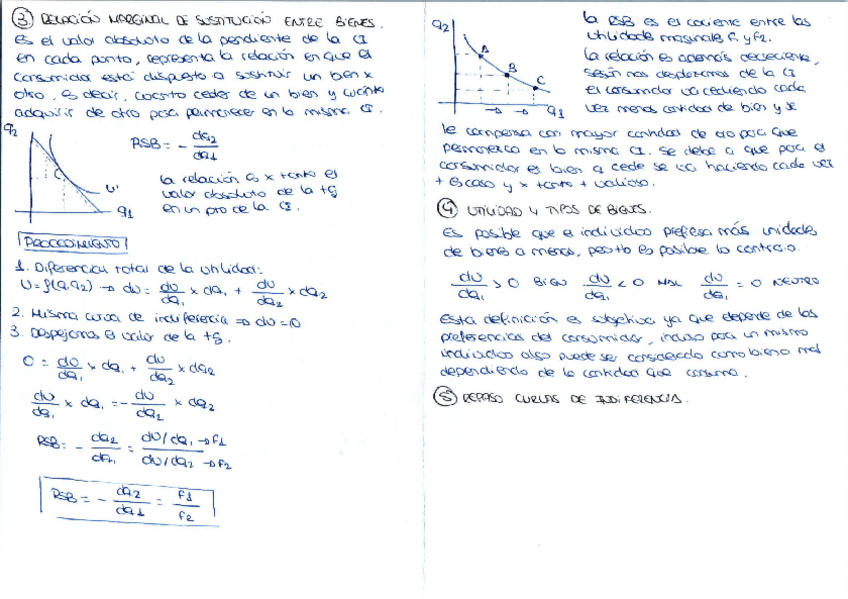 ③ RELACIÓN MARGINAL DE SUSTITUCIÓN ENTRE BIENES.
Es el valor absoluto de la pendiente de la CI
en cada punto, representa la relación en que el
consumidor está dispuesto a sustituir un bien x
otro, es decir, cuánto ceder de un bien y cuánto
adquirir de otro para permanecer en la misma CI.
q2
RSB = - dq2/dq1
C
U'
q1
La relación es x tanto el
valor absoluto de la +g
en un pto de la CI.
PROCEDIMIENTO
1. Diferencial total de la utilidad:
U = f(q1q2) → dU = dU/dq1 × dq1 + dU/dq2 × dq2
2. Misma curva de indiferencia ⇒ dU = 0
3. Despejamos el valor de la +g.
0 = dU/dq1 × dq1 + dU/dq2 × dq2
dU/dq1 × dq1 = - dU/dq2 × dq2
RSB = - dq2/dq1 = dU/dq1 → f1 / dU/dq2 → f2
RSB = - dq2/dq1 = f1/f2
q2
A
B
C
q1
La RSB es el cociente entre las
utilidades marginales f1 y f2.
La relación es además decreciente,
según nos desplazamos de la CI
el consumidor va cediendo cada
vez menos cantidad de bien y se
le compensa con mayor cantidad de otro para que
permanezca en la misma CI. Se debe a que para el
consumidor el bien q cede se va haciendo cada vez
+ escaso y x tanto + valioso.
④ UTILIDAD Y TIPOS DE BIENES.
Es posible que el individuo prefiera más unidades
de bienes a menos, pero tb es posible lo contrario.
dU/dq1 > 0 BIEN dU/dq1 < 0 MAL dU/dq1 = 0 NEUTRO
Esta definición es subjetiva ya que depende de las
preferencias del consumidor, incluso para un mismo
individuo algo puede ser considerado como bien o mal
dependiendo de la cantidad que consuma.
⑤ REPASO CURVAS DE INDIFERENCIA.